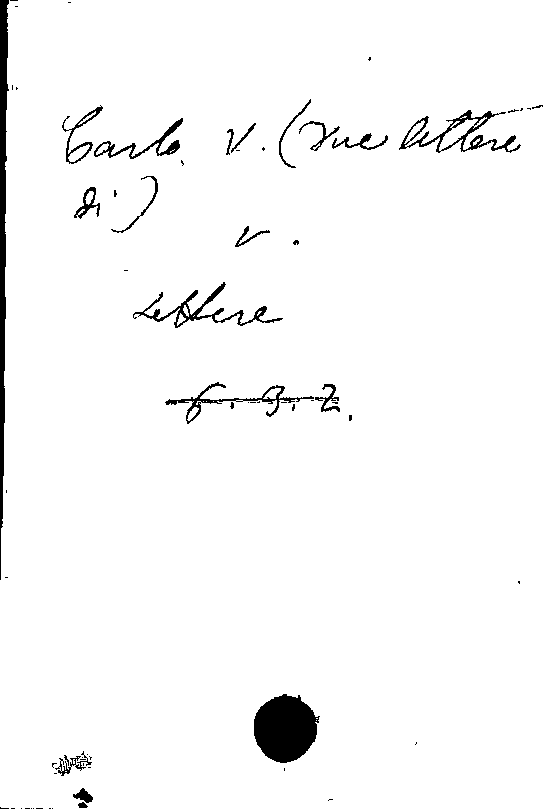 Carlo V. (due lettere
di)
v.
Lettere
6. 3. 2.